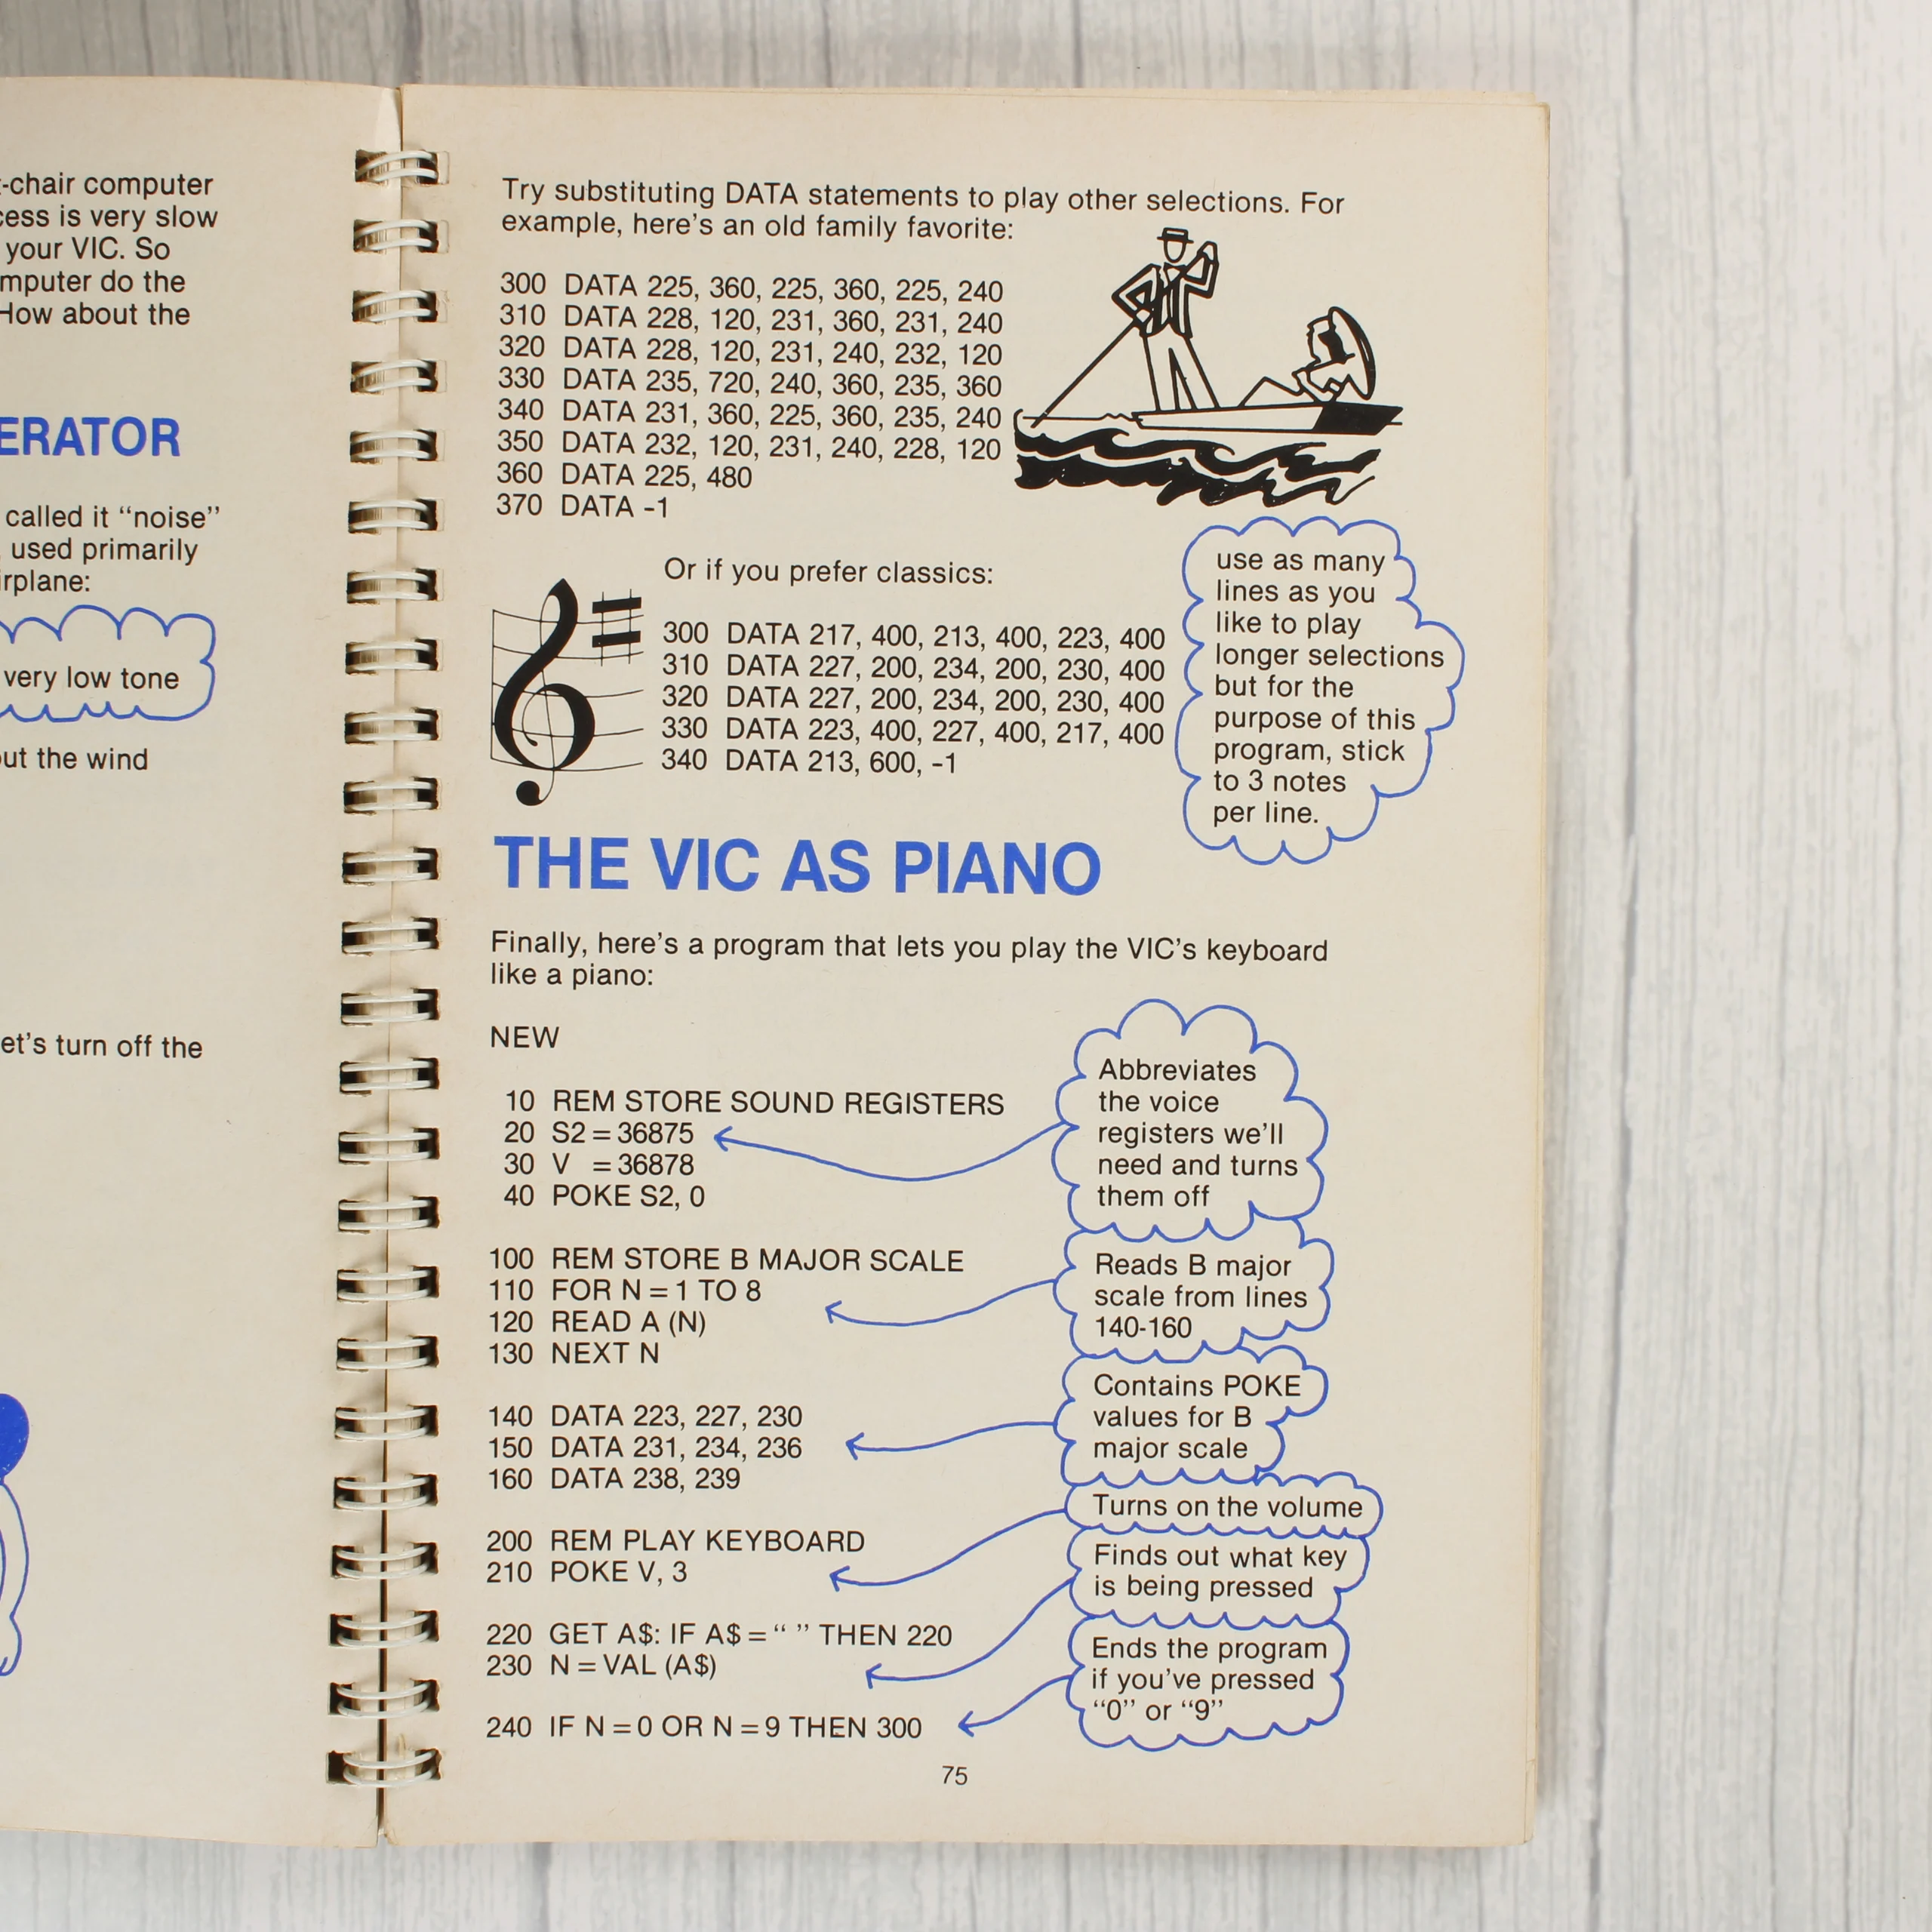 -chair computer
cess is very slow
your VIC. So
mputer do the
How about the
ERATOR
called it “noise”
used primarily
irplane:
very low tone
out the wind
et's turn off the
Try substituting DATA statements to play other selections. For
example, here's an old family favorite:
300 DATA 225, 360, 225, 360, 225, 240
310 DATA 228, 120, 231, 360, 231, 240
320 DATA 228, 120, 231, 240, 232, 120
330 DATA 235, 720, 240, 360, 235, 360
340 DATA 231, 360, 225, 360, 235, 240
350 DATA 232, 120, 231, 240, 228, 120
360 DATA 225, 480
370 DATA -1
Or if you prefer classics:
300 DATA 217, 400, 213, 400, 223, 400
310 DATA 227, 200, 234, 200, 230, 400
320 DATA 227, 200, 234, 200, 230, 400
330 DATA 223, 400, 227, 400, 217, 400
340 DATA 213, 600, -1
use as many
lines as you
like to play
longer selections
but for the
purpose of this
program, stick
to 3 notes
per line.
THE VIC AS PIANO
Finally, here's a program that lets you play the VIC's keyboard
like a piano:
NEW
10 REM STORE SOUND REGISTERS
20 S2 = 36875
30 V = 36878
40 POKE S2, 0
Abbreviates
the voice
registers we'll
need and turns
them off
100 REM STORE B MAJOR SCALE
110 FOR N = 1 TO 8
120 READ A (N)
130 NEXT N
Reads B major
scale from lines
140-160
140 DATA 223, 227, 230
150 DATA 231, 234, 236
160 DATA 238, 239
Contains POKE
values for B
major scale
200 REM PLAY KEYBOARD
210 POKE V, 3
Turns on the volume
220 GET A$: IF A$ = “ ” THEN 220
230 N = VAL (A$)
Finds out what key
is being pressed
240 IF N = 0 OR N = 9 THEN 300
Ends the program
if you've pressed
“0” or “9”
75